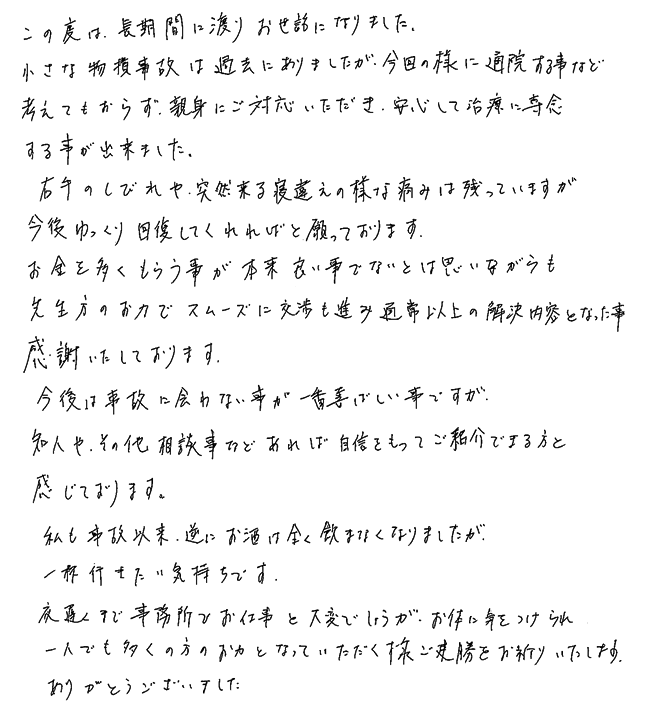 この度は、長期間に渡りお世話になりました。
小さな物損事故は過去にありましたが、今回の様に通院する事など
考えてもおらず、親身にご対応いただき、安心して治療に専念
する事が出来ました。
右手のしびれや、突然来る寝違えの様な痛みは残っていますが
今後ゆっくり回復してくれればと願っております。
お金を多くもらう事が本来良い事でないとは思いながらも
先生方のお力でスムーズに交渉も進み通常以上の解決内容となった事
感謝いたしております。
今後は事故に会わない事が一番喜ばしい事ですが、
知人や、その他相談事などあれば自信をもってご紹介できる方と
感じております。
私も事故以来、逆にお酒は全く飲まなくなりましたが、
一杯付きたい気持ちです。
夜遅くまで事務所でお仕事と大変でしょうが、お体に気をつけられ
一人でも多くの方のお力となっていただく様ご健勝をお祈りいたします。
ありがとうございました